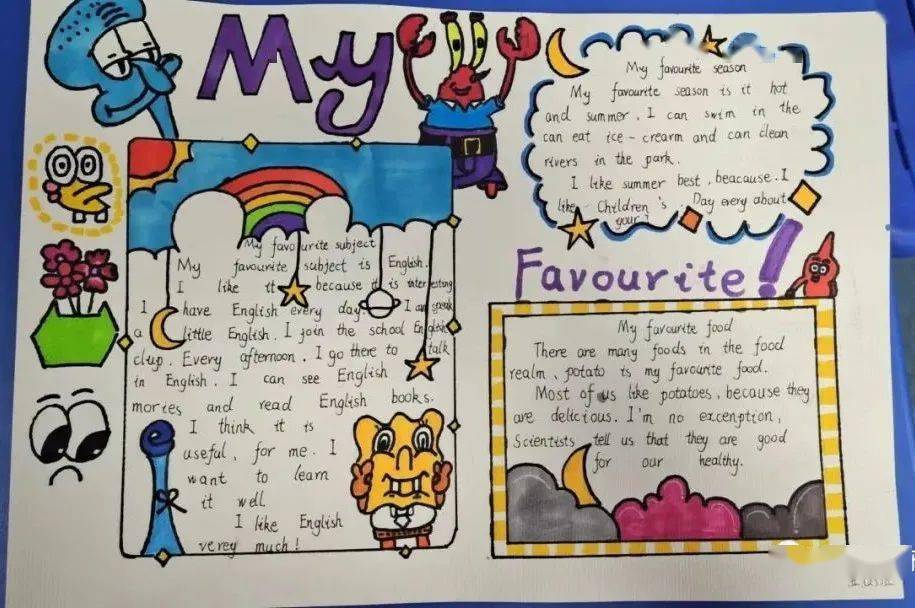 My
My favourite season
My favourite season is it hot
and summer. I can swim in the
can eat ice-crearm and can clean
rivers in the park.
I like summer best, beacause. I
like Children's. Day every about
your?
My favourite subject
My favourite subject is English.
I like it because it is interesting
I have English every day. I can speak
a little English. I join the school English
clup. Every afternoon. I go there to talk
in English. I can see English
mories and read English books.
I think it is
useful, for me. I
want to learn
it well
I like English
verey much!
Favourite!
My favourite food
There are many foods in the food
realm, potato is my favourite food.
Most of us like potatoes, because they
are delicious. I'm no excenption,
Scientists tell us that they are good
for our healthy.